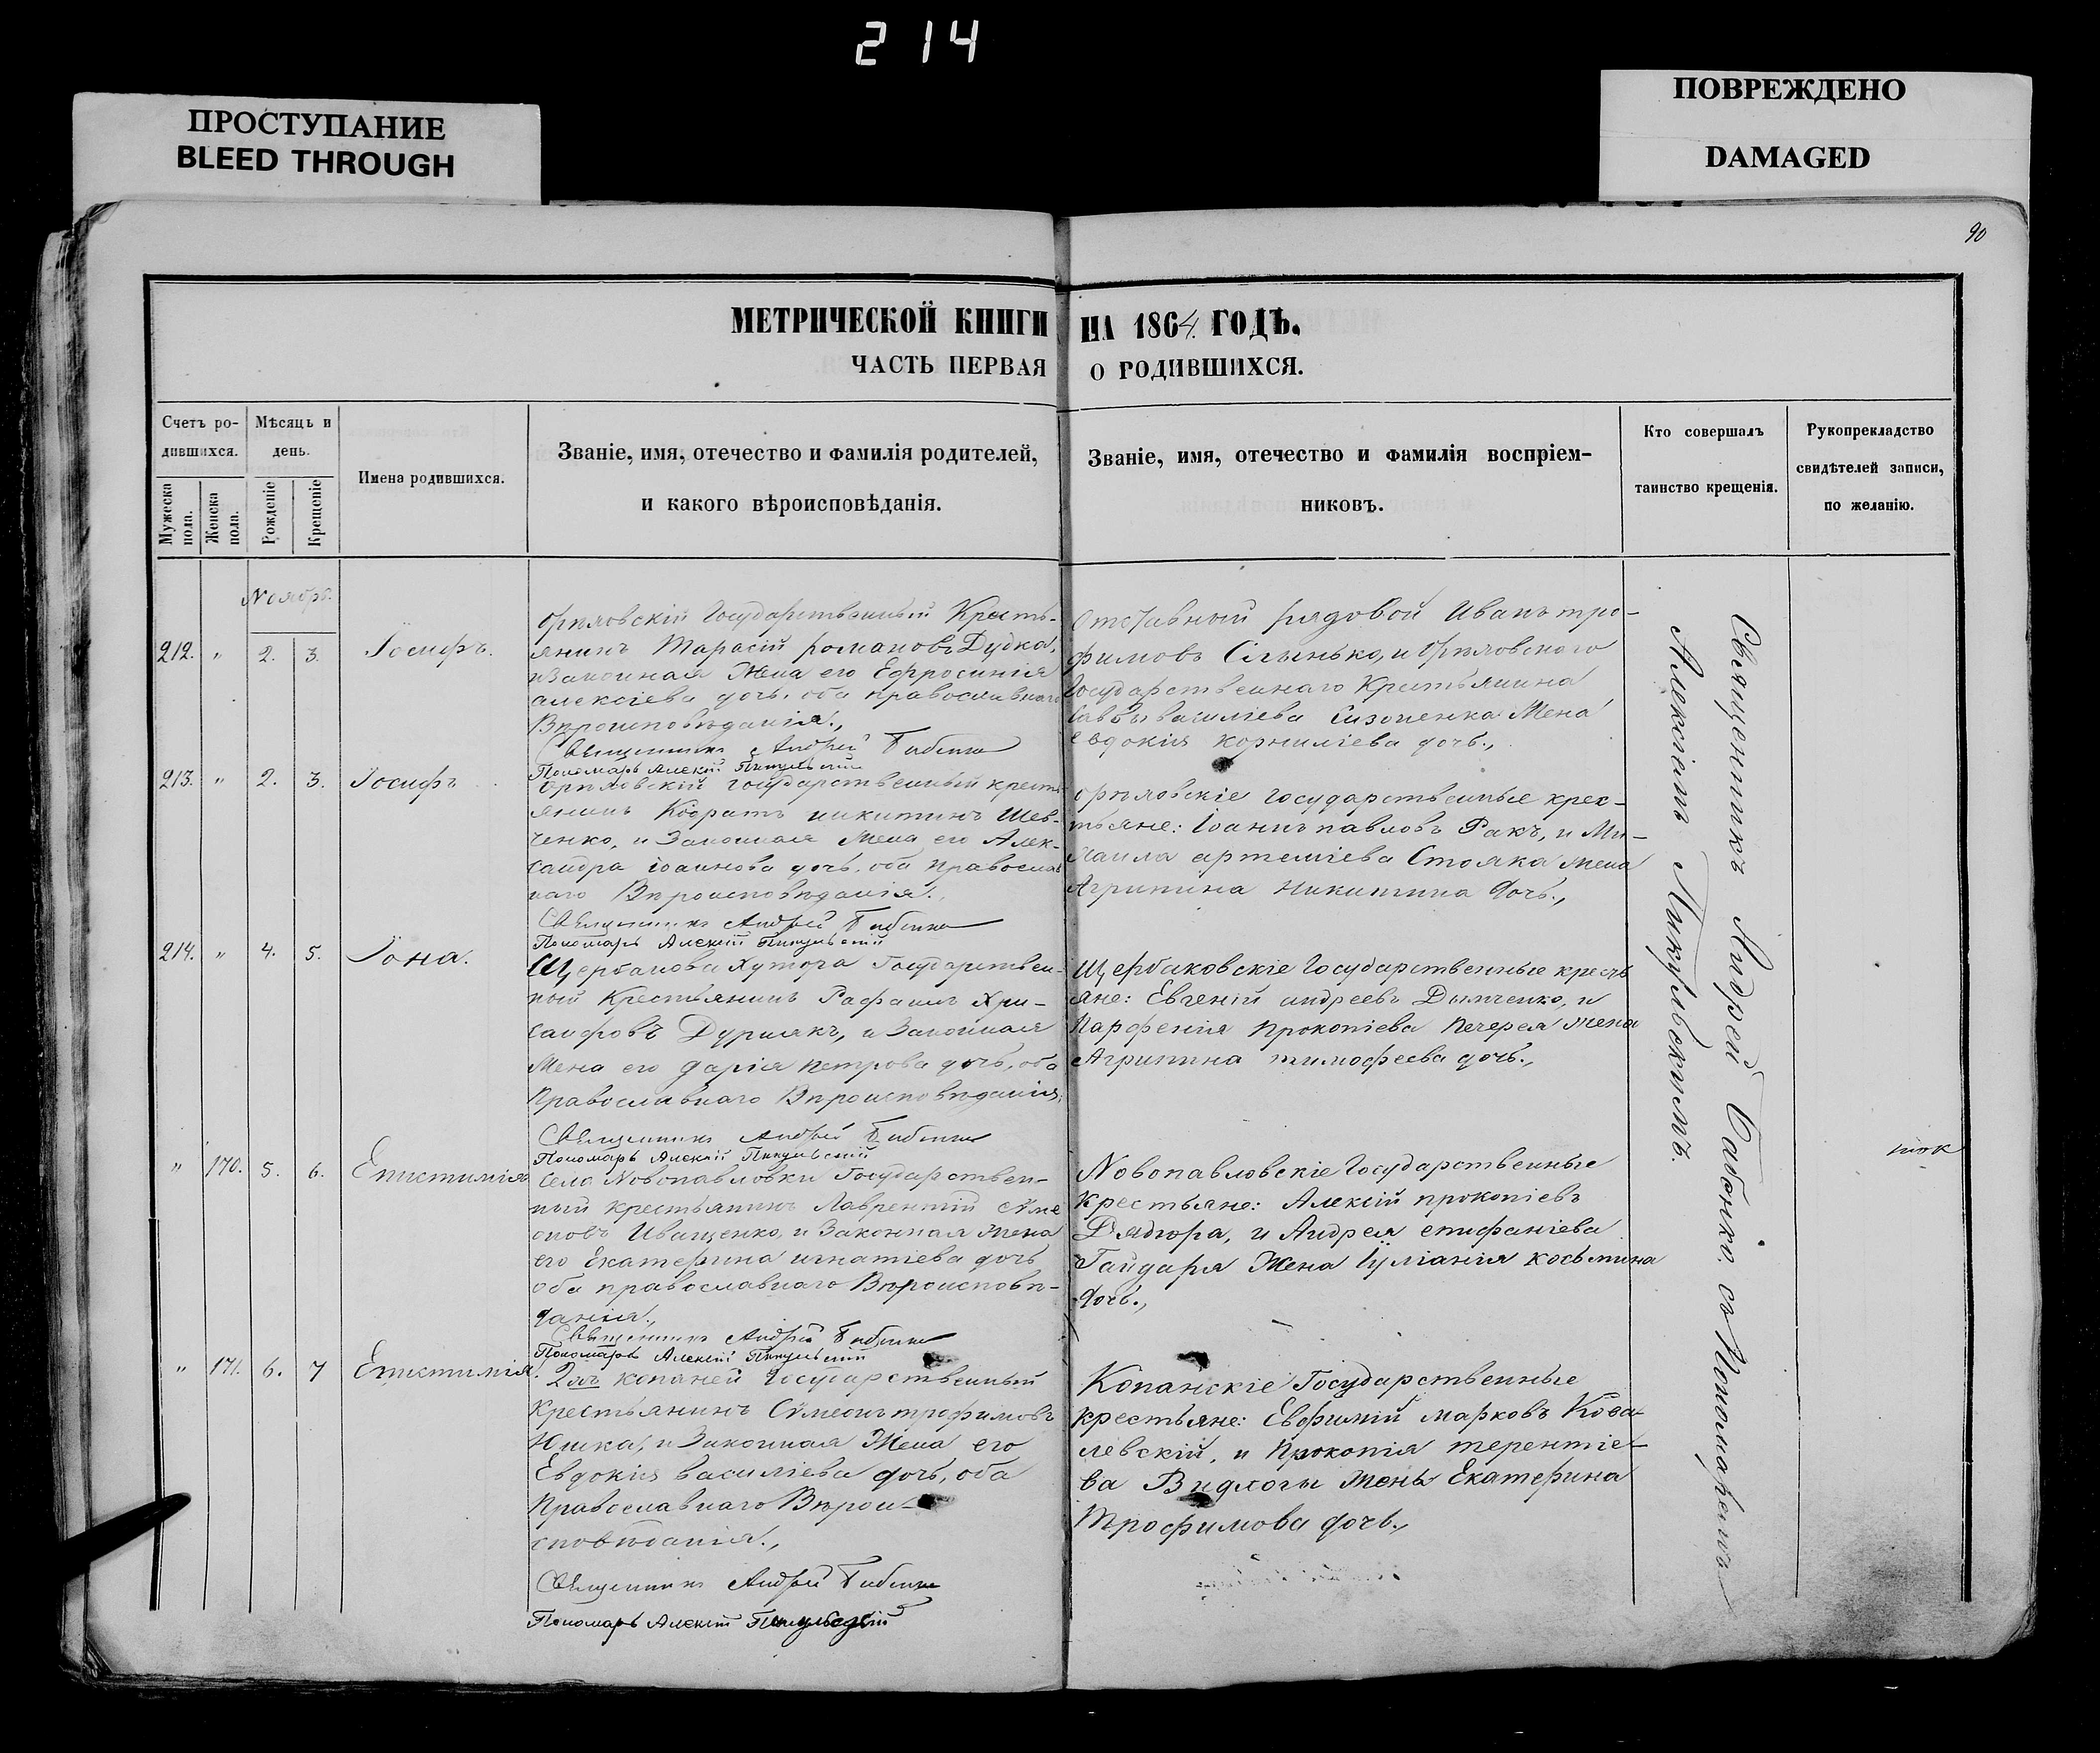 214
ПРОСТУПАНИЕ
BLEED THROUGH
ПОВРЕЖДЕНО
DAMAGED
90
МЕТРИЧЕСКОЙ КНИГИ НА 1864 ГОДЪ.
ЧАСТЬ ПЕРВАЯ О РОДИВШИХСЯ.
Счетъ ро-
дившихся.
Мужеска пола.
Женска пола.
Мѣсяцъ и
день.
Рожденіе
Крещеніе
Имена родившихся.
Званіе, имя, отечество и фамилія родителей,
и какого вѣроисповѣданія.
Званіе, имя, отечество и фамилія воспріем-
никовъ.
Кто совершалъ
таинство крещенія.
Рукоприкладство
свидѣтелей записи,
по желанію.
Ноябрь.
212. " 2. 3. Іосифъ.
Орѣловскій Государственный Кресть-
янинъ Тарасій романовъ Дудка,
и Законная Жена его Ефросинія
алексіева дочь, оба православнаго
Вѣроисповѣданія.,
Священникъ Андрей Бабенко
Пономарь Алексій Пикульскій
Отставный рядовой Иванъ тро-
фимовъ и Орѣловского
Государственнаго Крестьянина
Саввы василіева Сизоненка Жена
евдокія корниліева дочь.,
213. " 2. 3. Іосифъ
Орѣловскій Государственный кресть-
янинъ Кодратъ никитинъ Шев-
ченко, и Законная Жена его Алек-
сандра іоаннова дочь, оба православ
наго Вѣроисповѣданія.,
Священникъ Андрей Бабенко
Пономарь Алексій Пикульскій
орѣловскіе государственные крес-
тьяне: Іоаннъ павловъ Ракъ, и Ми-
хаила артеміева Стояка жена
Агрипина Никитина дочь.,
214. " 4. 5. Іона.
Щербакова Хутора Государствен-
ный Крестьянинъ Рафаилъ Хри-
санфовъ Дурнякъ, и Законная
Жена его Дарія петрова дочь, оба
Православнаго Вѣроисповѣданія,
Священникъ Андрей Бабенко
Пономарь Алексій Пикульскій
Щербаковскіе Государственные кресть
яне: Евгеній андреевъ Дымченко, и
Парфенія прокопіева печерея жена
Агрипина тимофеева дочь.,
" 170. 5. 6. Епистимія
Села Новопавловки Государствен-
ный крестьянинъ Лаврентій сѵме
оновъ Иващенко, и Законная жена
его Екатерина игнатіева дочь
оба православнаго Вѣроисповѣ-
данія.,
Священникъ Андрей Бабенко
Пономарь Алексій Пикульскій
Новопавловскіе Государственные
Крестьяне: Алексій прокопіевъ
Дядюра, и Андрея епифаніева
Гайдаря Жена Іуліанія косьмина
дочь.,
" 171. 6. 7 Епистимія.
2хъ копаней Государственный
Крестьянинъ Сѵмеонъ трофимовъ
Юшка, и Законная Жена его
Евдокія василіева дочь, оба
Православнаго Вѣрои-
сповѣданія.,
Священникъ Андрей Бабенко
Пономарь Алексій Пикульскій
Копанскіе Государственные
крестьяне: Евфимій марковъ Кова-
левскій, и прокопія терентіе-
ва Видлоги жена Екатерина
Трофимова дочь.,
Священникъ Андрей Бабенко съ Пономаремъ
Алексіемъ Пикульскимъ.